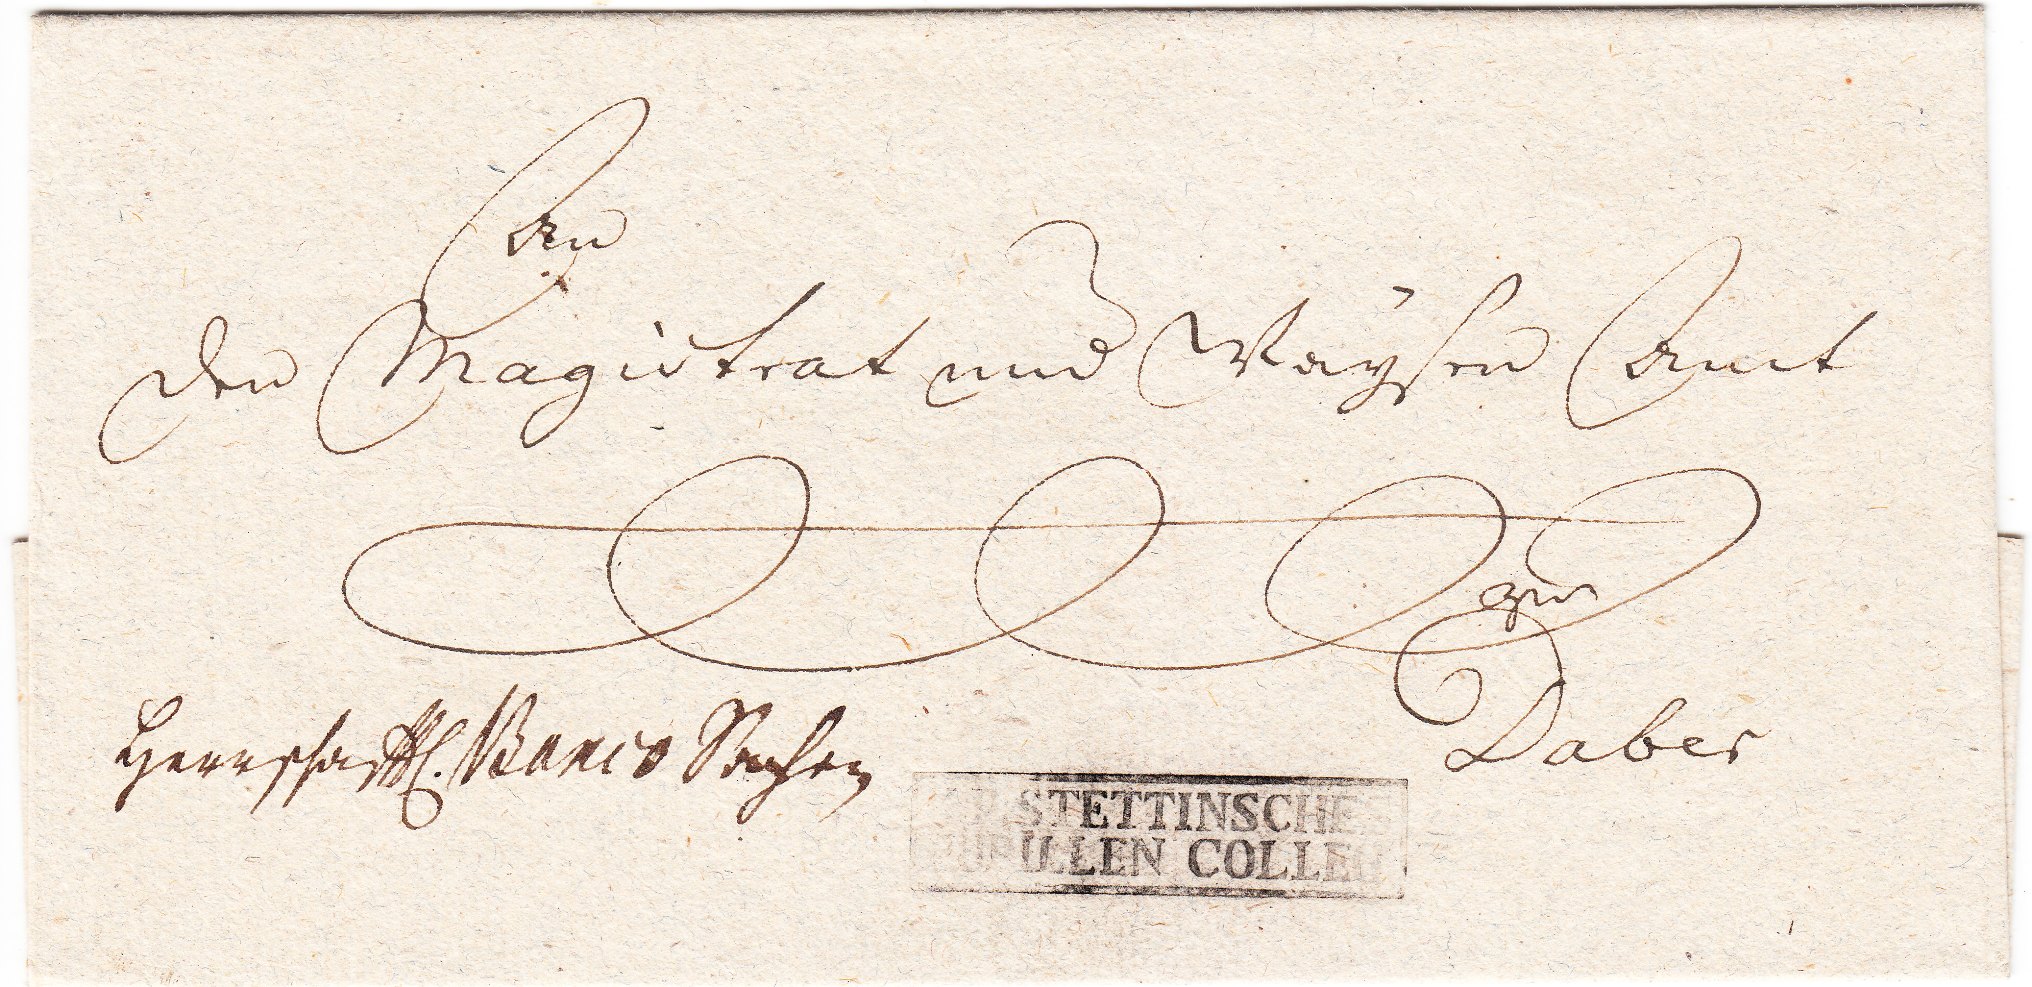 An
den Magistrat und Waysen Amt
zu
Daber
Herrschaftl. Banco Sachen
STETTINSCHES
PUPILLEN COLLEG